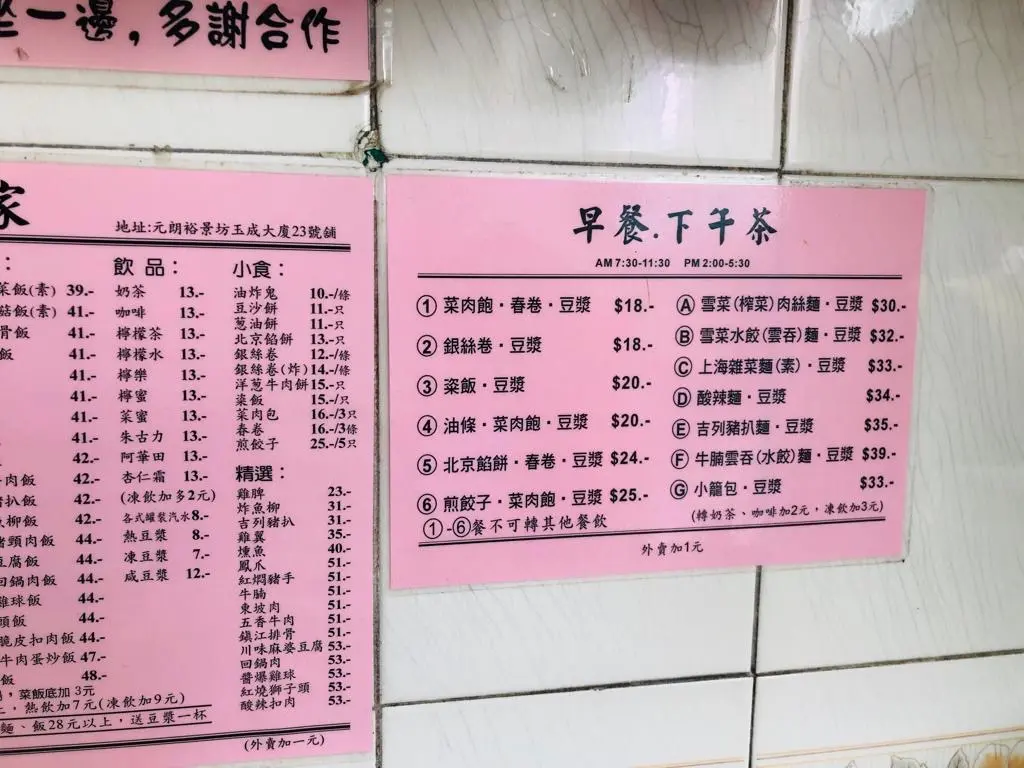 坐一邊,多謝合作
家
地址:元朗裕景坊玉成大廈23號舖
:
菜飯(素) 39.-
菇飯(素) 41.-
骨飯 41.-
飯 41.-
41.-
41.-
41.-
42.-
牛肉飯 42.-
豬扒飯 42.-
魚柳飯 42.-
豬頸肉飯 44.-
豆腐飯 44.-
回鍋肉飯 44.-
雞球飯 44.-
頭飯 44.-
脆皮扣肉飯 44.-
牛肉蛋炒飯 47.-
飯 48.-
,菜飯底加 3元
上,熱飲加7元(凍飲加9元)
麵、飯28元以上,送豆漿一杯
飲品:
奶茶 13.-
咖啡 13.-
檸檬茶 13.-
檸檬水 13.-
檸樂 13.-
檸蜜 13.-
菜蜜 13.-
朱古力 13.-
阿華田 13.-
杏仁霜 13.-
(凍飲加多2元)
各式罐裝汽水 8.-
熱豆漿 8.-
凍豆漿 7.-
咸豆漿 12.-
小食:
油炸鬼 10.-/條
豆沙餅 11.-只
蔥油餅 11.-只
北京餡餅 13.-只
銀絲卷 12.-/條
銀絲卷(炸) 14.-/條
洋蔥牛肉餅 15.-只
粢飯 15.-/只
菜肉包 16.-/3只
春卷 16.-/3條
煎餃子 25.-/5只
精選:
雞脾 23.-
炸魚柳 31.-
吉列豬扒 31.-
雞翼 35.-
燻魚 40.-
鳳爪 51.-
紅燜豬手 51.-
牛腩 51.-
東坡肉 51.-
五香牛肉 51.-
鎮江排骨 51.-
川味麻婆豆腐 53.-
回鍋肉 53.-
醬爆雞球 53.-
紅燒獅子頭 53.-
酸辣扣肉 53.-
(外賣加一元)
早餐.下午茶
AM 7:30-11:30 PM 2:00-5:30
① 菜肉飽・春卷・豆漿 $18.-
② 銀絲卷・豆漿 $18.-
③ 粢飯・豆漿 $20.-
④ 油條・菜肉飽・豆漿 $20.-
⑤ 北京餡餅・春卷・豆漿 $24.-
⑥ 煎餃子・菜肉飽・豆漿 $25.-
①-⑥餐不可轉其他餐飲
Ⓐ 雪菜(榨菜)肉絲麵・豆漿 $30.-
Ⓑ 雪菜水餃(雲吞)麵・豆漿 $32.-
Ⓒ 上海雜菜麵(素)・豆漿 $33.-
Ⓓ 酸辣麵・豆漿 $34.-
Ⓔ 吉列豬扒麵・豆漿 $35.-
Ⓕ 牛腩雲吞(水餃)麵・豆漿 $39.-
Ⓖ 小籠包・豆漿 $33.-
(轉奶茶、咖啡加2元,凍飲加3元)
外賣加1元